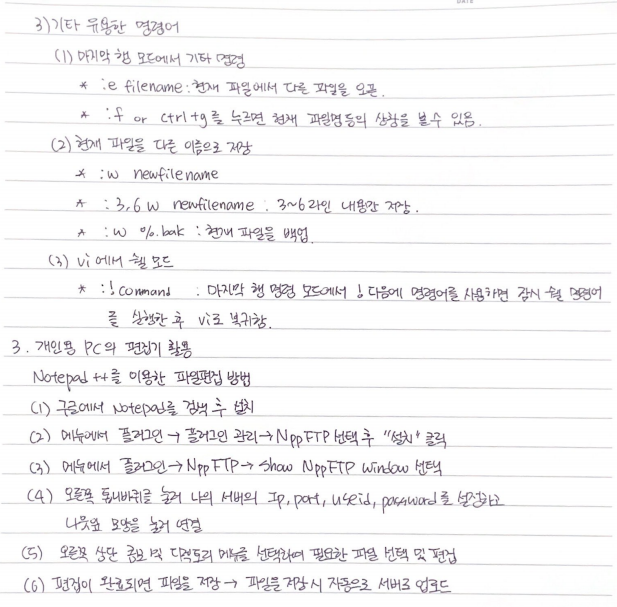 DATE
3) 기타 유용한 명령어
(1) 마지막 행 모드에서 기타 명령
* :e filename : 현재 파일에서 다른 파일을 오픈.
* :f or ctrl+g를 누르면 현재 파일명등의 상황을 볼수 있음.
(2) 현재 파일을 다른 이름으로 저장
* :w newfilename
* :3,6w newfilename : 3~6라인 내용만 저장.
* :w %.bak : 현재 파일을 백업
(3) vi에서 쉘 모드
* :! command : 마지막 행 명령 모드에서 ! 다음에 명령어를 사용하면 잠시 쉘 명령어
를 실행한 후 vi로 복귀함.
3. 개인용 PC의 편집기 활용
Notepad ++를 이용한 파일편집 방법
(1) 구글에서 Notepad를 검색 후 설치
(2) 메뉴에서 플러그인 → 플러그인 관리 → NppFTP 선택 후 "설치" 클릭
(3) 메뉴에서 플러그인 → NppFTP → Show NppFTP Window 선택
(4) 오른쪽 톱니바퀴를 눌러 나의 서버의 Ip, port, useid, password를 설정하고
나뭇잎 모양을 눌러 연결
(5) 오른쪽 상단 및 디렉토리 메뉴를 선택하여 필요한 파일 선택 및 편집
(6) 편집이 완료되면 파일을 저장 → 파일을 저장 시 자동으로 서버로 업로드